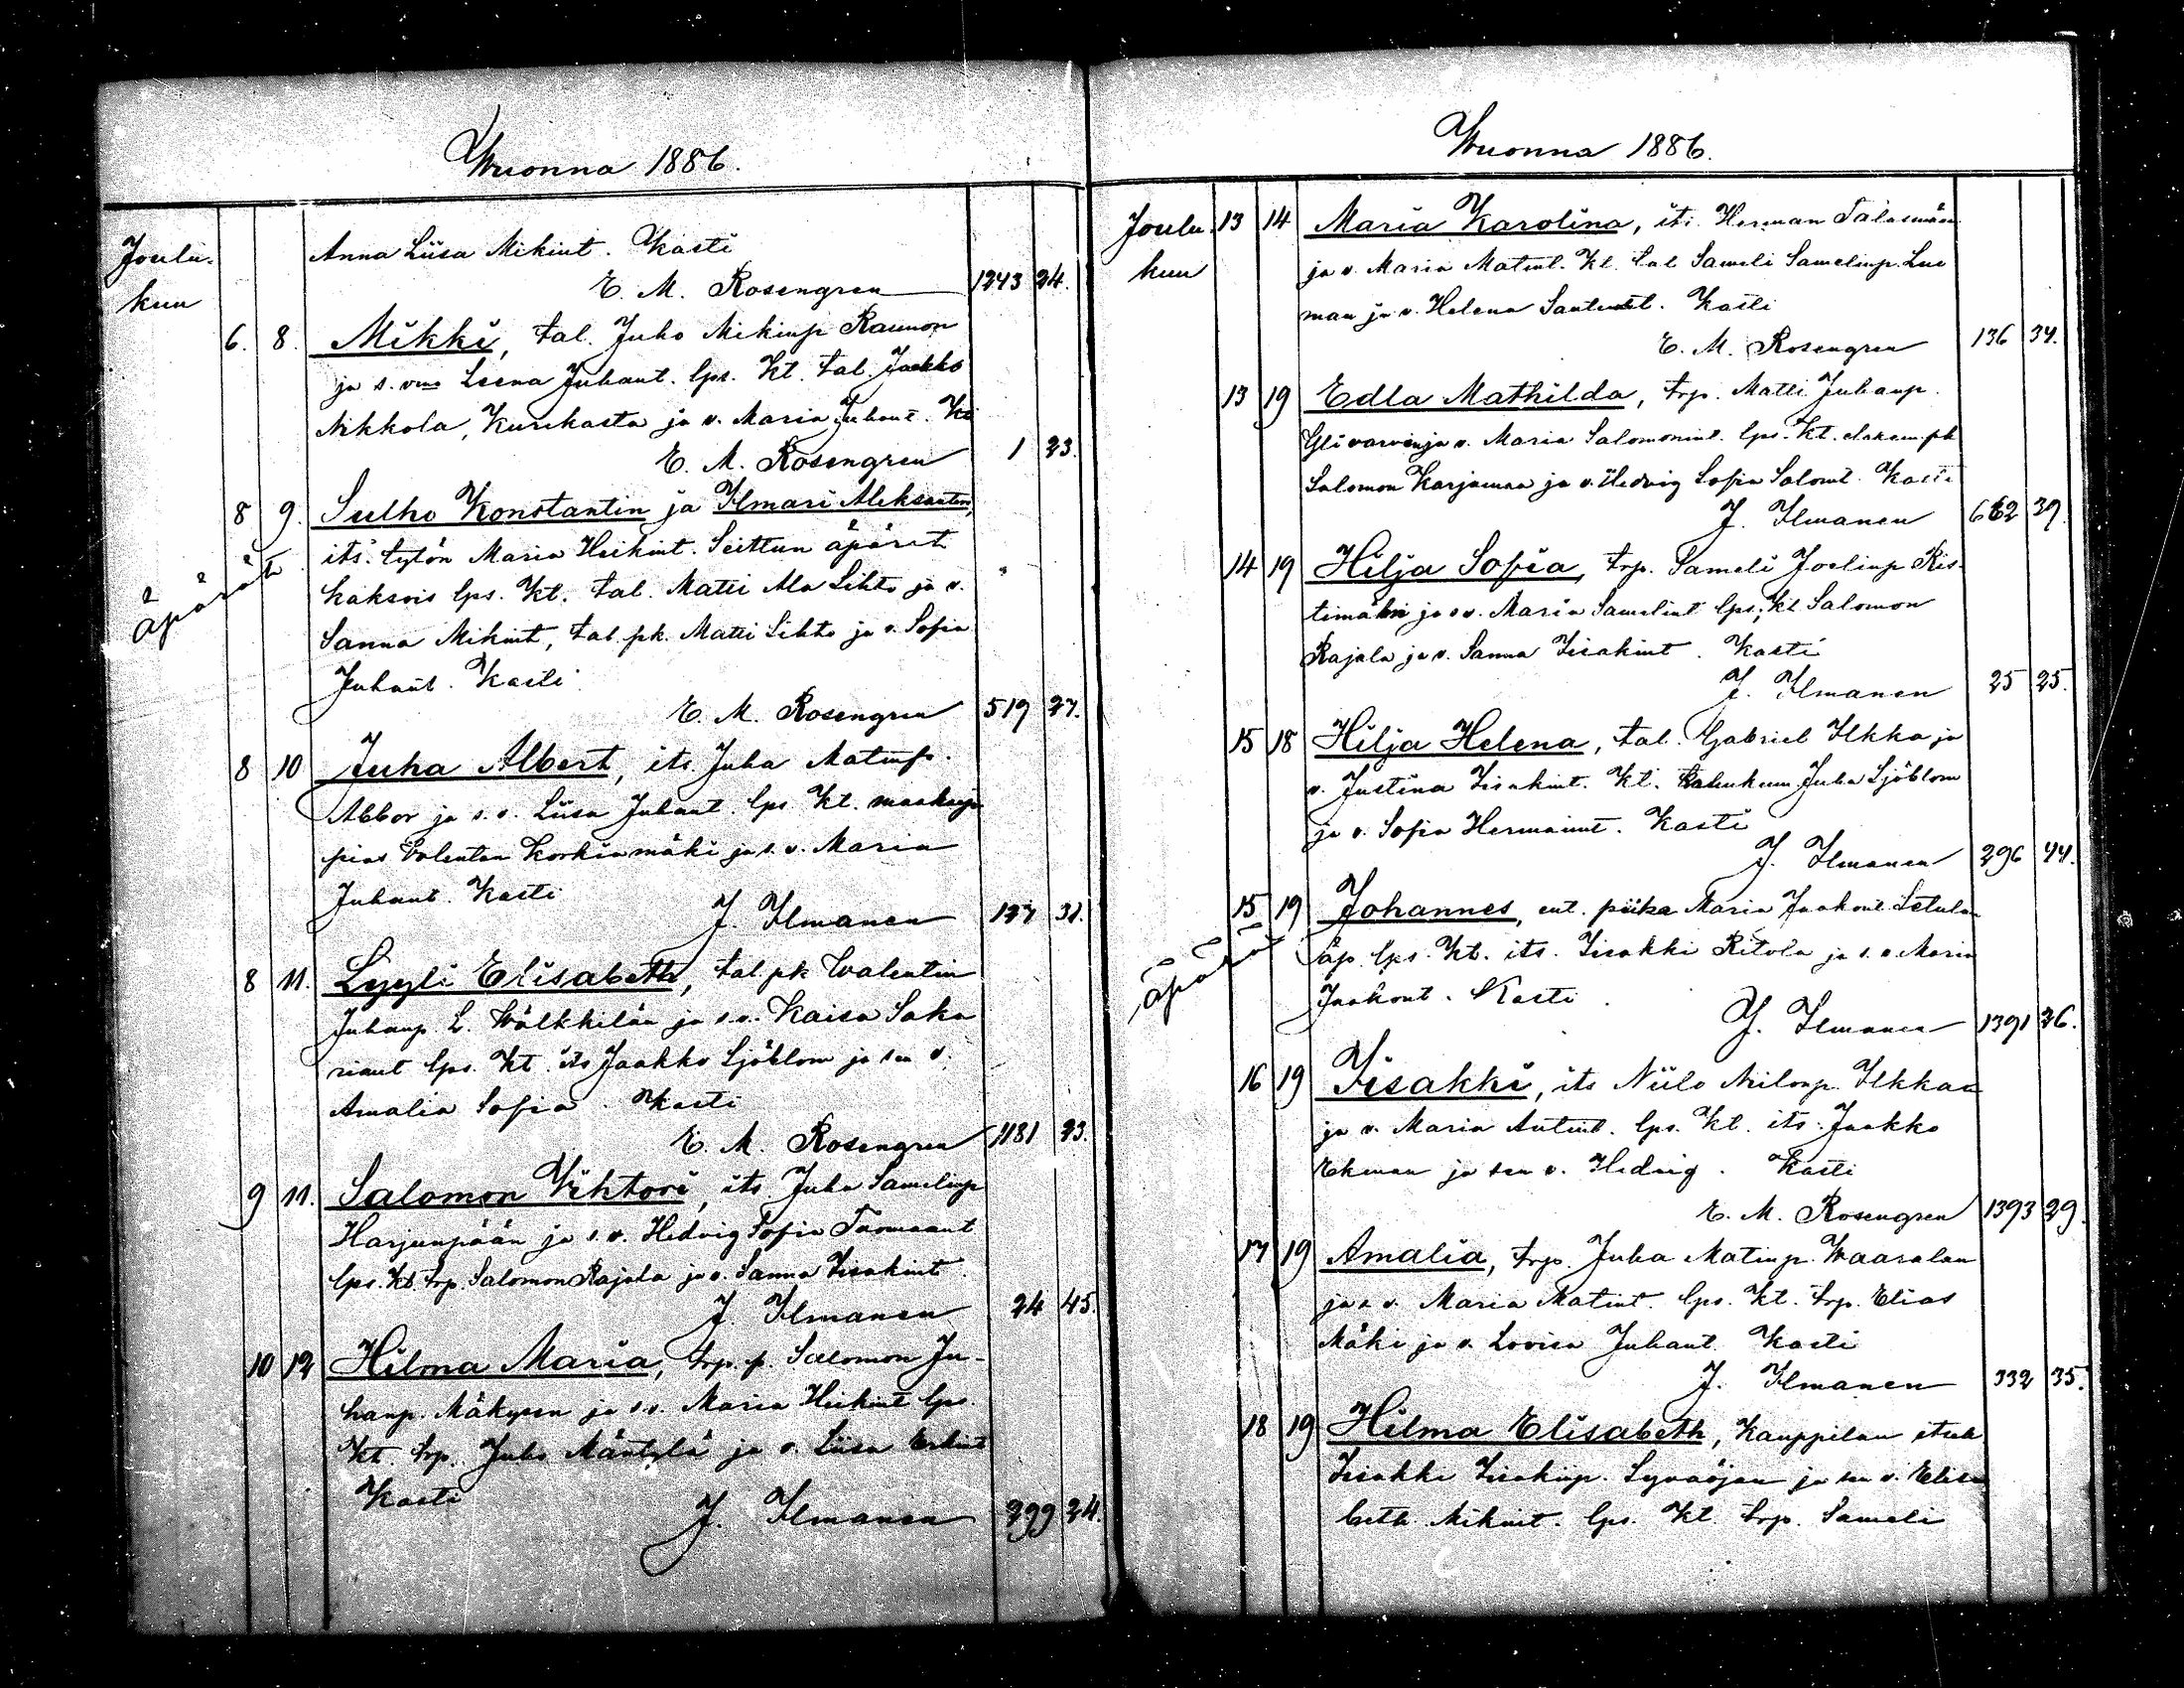 Wuonna 1886.
Joulu-
kuu
Anna Liisa Mikint. Kasti
E. M. Rosengren 1243 24.
6. 8. Mikki, tal. Juho Mikinp Raunon
ja s. vmo Leena Juhant. lps. Kt. tal. Jaakko
Nikkola, Kurikasta ja v. Maria Juhant. Ka
E. M. Rosengren 1 23.
8 9. Sulho Konstantin ja Ilmari Aleksanteri,
its. tytön Maria Heikint. Seittun äpärät
äpärät
kaksois lps. Kt. tal. Matti Ala Lihto ja v.
Sanna Mikint, tal. pk. Matti Lihto ja v. Sofia
Juhant. Kasti
E. M. Rosengren 519 27.
8 10 Juha Albert, its. Juha Matinp.
Abbor ja s. v. Liisa Juhant. lps. Kt. maakaup
pias Valentin Korkiamäki ja s. v. Maria
Juhant. Kasti
J. Ilmanen 127 31.
8 11. Lyyli Elisabeth, tal. pk Walentin
Juhanp. L. Wälkkilän ja s. v. Kaisa Saka
riant lps. Kt. its Jaakko Sjöblom ja sen v.
Amalia Sofia. Kasti
E. M. Rosengren 1181 23.
9 11. Salomon Vihtori, its. Juha Samelinp
Harjunpään ja s. v. Hedvig Sofia Tuomaant
lps. Kt. trp. Salomon Rajala ja v. Sanna Iisakint.
J. Ilmanen 24 45.
10 12 Hilma Maria, trp. p. Salomon Ju-
hanp. Mäkysen ja s. v. Maria Heikint lps.
Kt. trp. Juho Mäntylä ja v. Liisa Erkint
Kasti
J. Ilmanen 299 24.
Wuonna 1886.
Joulu-
kuu
13 14 Maria Karolina, its. Herman Talasmäen
ja v. Maria Matint. Kt. tal Sameli Samelinp. Luo
man ja v. Helena Santerint. Kasti
E. M. Rosengren 136 34.
13 19 Edla Mathilda, trp. Matti Juhanp.
Yli ja v. Maria Salomonint. lps. Kt. pk
Salomon Karjanmaa ja v. Hedvig Sofia Salomt. Kasti
J. Ilmanen 662 39.
14 19 Hilja Sofia, trp. Sameli Joelinp Ris-
timäkin ja s v. Maria Samelint lps; Kt Salomon
Rajala ja v. Sanna Iisakint. Kasti
J. Ilmanen 25 25.
15 18 Hilja Helena, tal. Gabriel Ilkka ja
v. Justina Iisakint. Kt. Juha Sjöblom
ja v. Sofia Hermannt. Kasti
J. Ilmanen 296 44.
15 19 Johannes, ent. piika Maria Jaakont.
äpärä
äp. lps. Kt. its. Iisakki Ritola ja s. v. Maria
Jaakont. Kasti
J. Ilmanen 1391 26.
16 19 Iisakki, its Niilo Niilonp. Ilkkan
ja v. Maria Antint. lps. Kt. its. Jaakko
Ekman ja sen v. Hedvig. Kasti
E. M. Rosengren 1393 29.
17 19 Amalia, trp. Juha Matinp. Waaralan
ja s v. Maria Matint. lps. Kt. trp. Elias
Mäki ja v. Lovisa Juhant. Kasti
J. Ilmanen 332 35.
18 19 Hilma Elisabeth, Kauppilan itsell
Iisakki Iisakinp. Syväojan ja sen v. Elisa
beth Mikint. lps. Kt. trp. Sameli